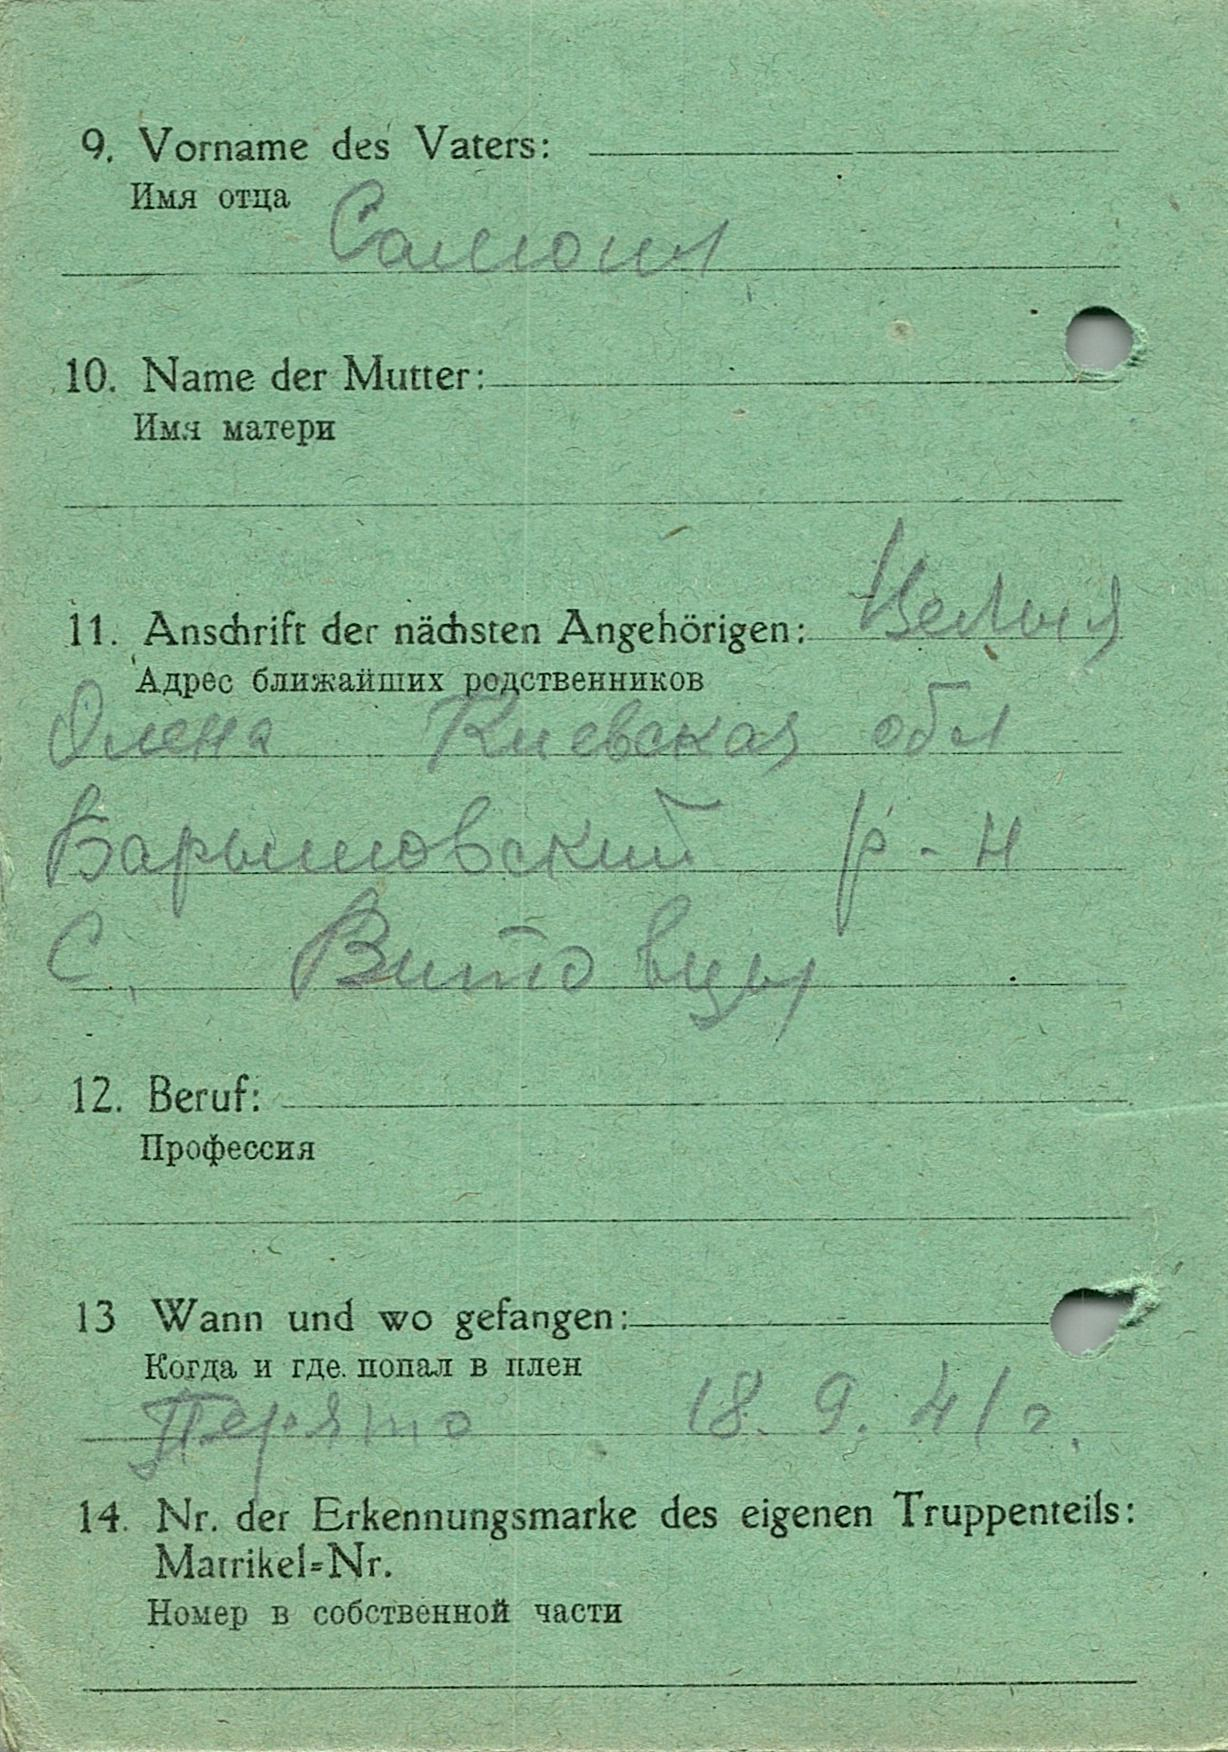 9. Vorname des Vaters:
Имя отца
Самоил
10. Name der Mutter:
Имя матери
11. Anschrift der nächsten Angehörigen:
Адрес ближайших родственников
Олена Киевская обл
Барышовский р-н
С. Витовцы
12. Beruf:
Профессия
13 Wann und wo gefangen:
Когда и где попал в плен
18. 9. 41 г.
14. Nr. der Erkennungsmarke des eigenen Truppenteils:
Matrikel-Nr.
Номер в собственной части